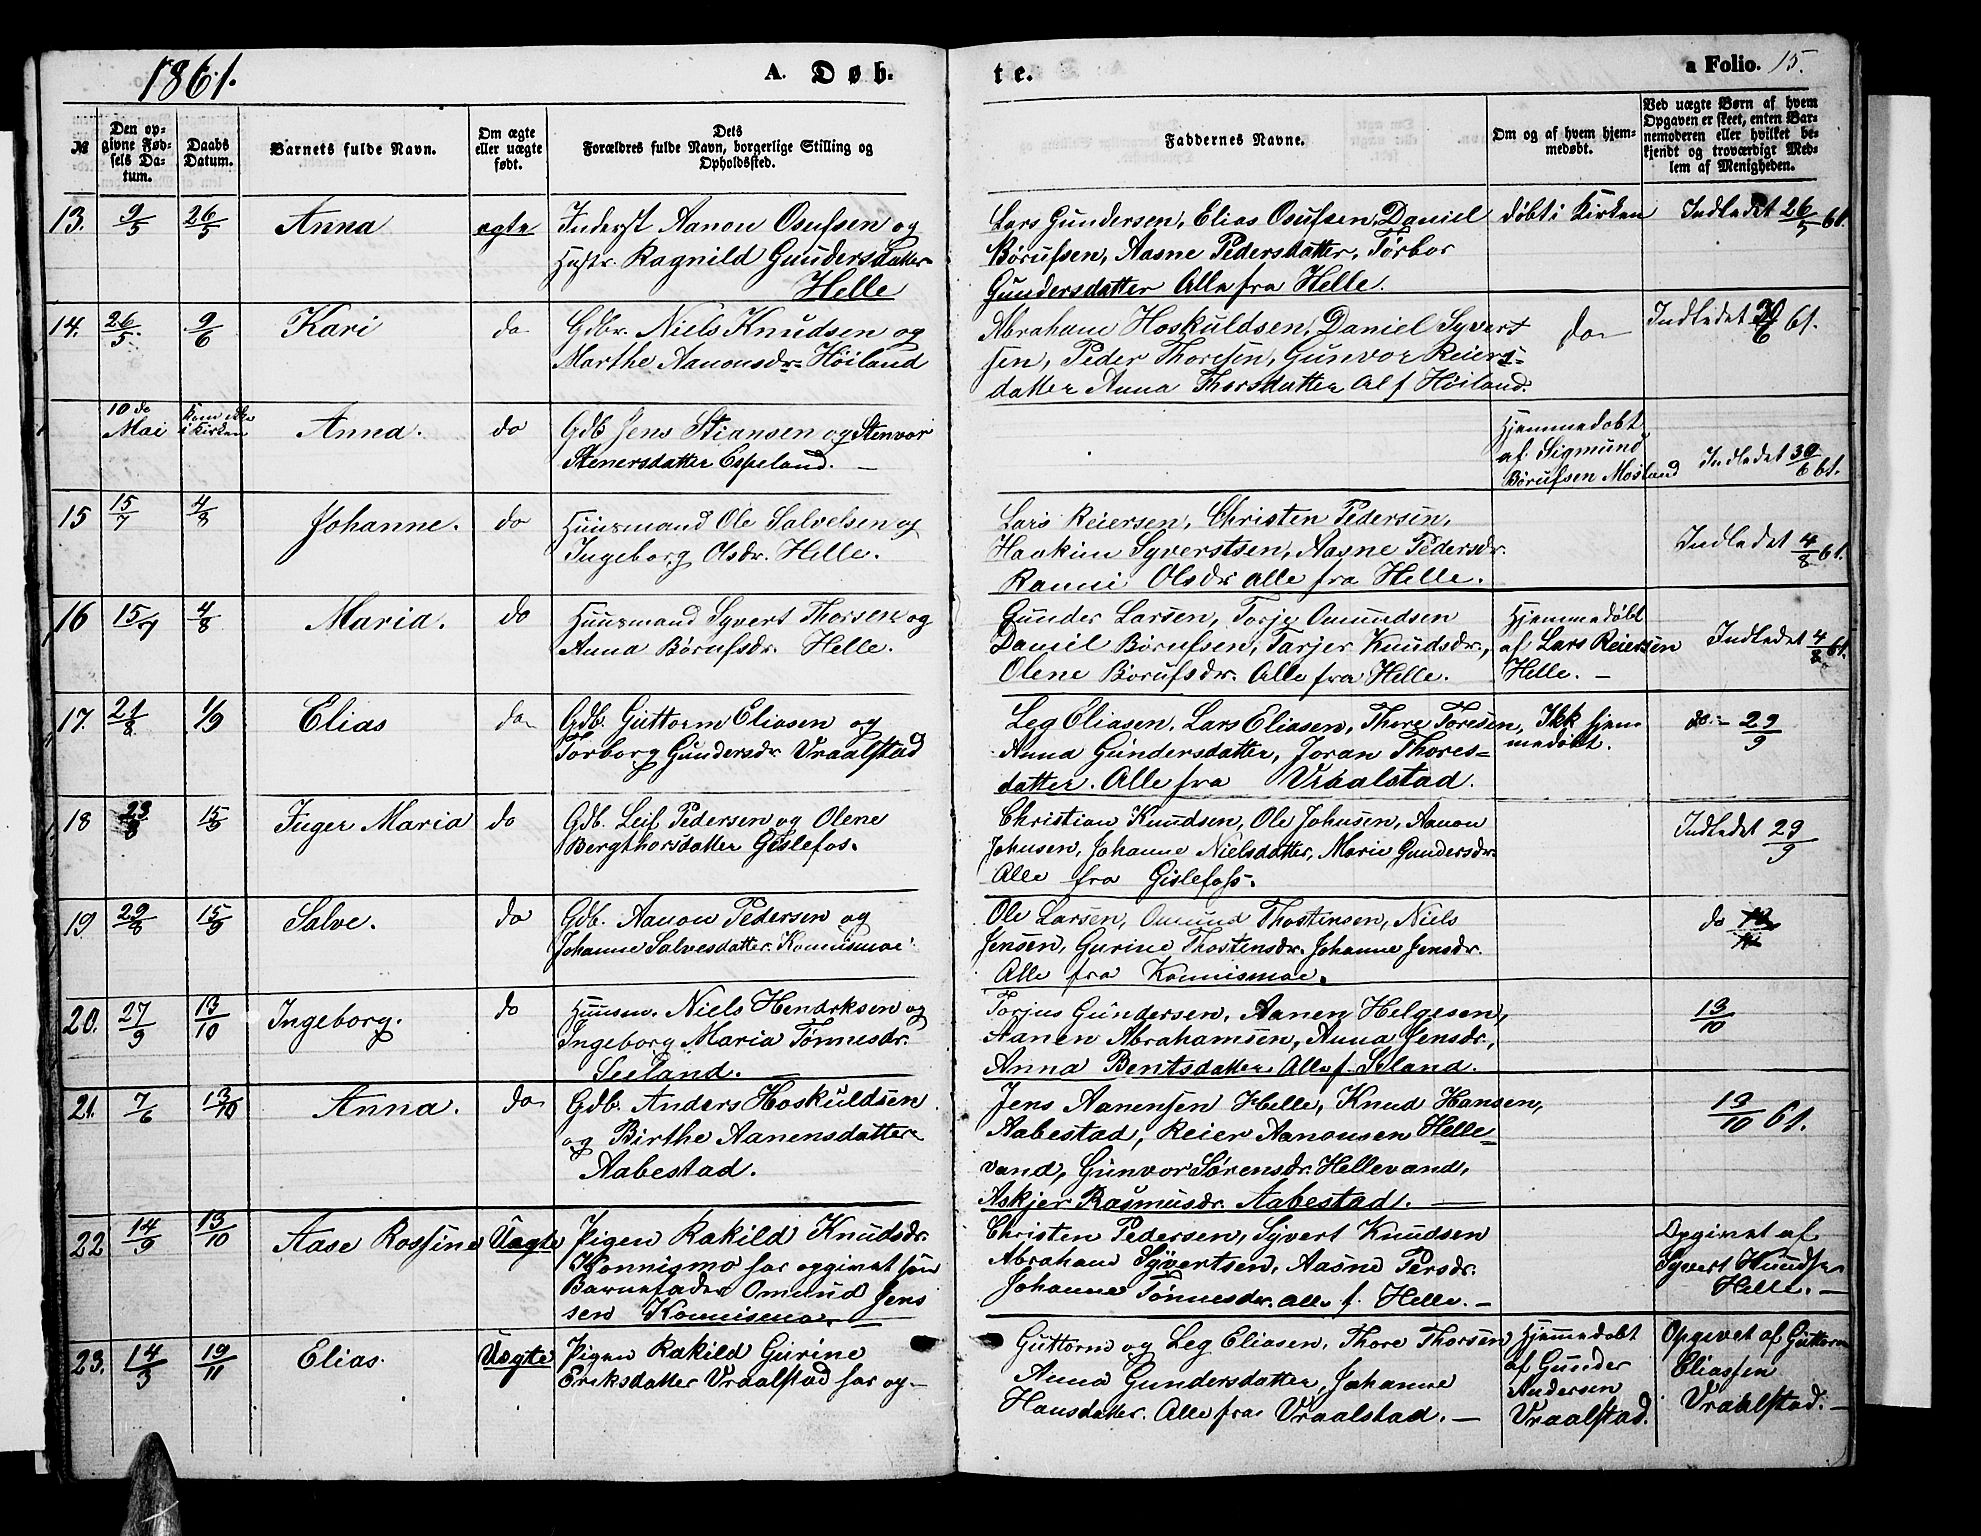 1861.
A. Døb.
te.
a Folio. 15.
№
Den op-
givne Fød-
sels Da-
tum.
Daabs
Datum.
Barnets fulde Navn.
Om ægte
eller uægte
født.
Dets
Forældres fulde Navn, borgerlige Stilling og
Opholdssted.
Faddernes Navne.
Om og af hvem hjem-
medøbt.
Ved uægte Børn af hvem
Opgaven er skeet, enten Bar-
nemoderen eller hvilket be-
kjendt og troværdigt Med-
lem af Menigheden.
13. 9/5 26/5 Anna ægte Inderst Aanon Osufsen og
Hustr. Ragnild Gundersdatter
Helle
Lars Gundersen, Elias Osufsen, Daniel
Børufsen, Aasne Pedersdatter, Tørbor
Gundersdatter Alle fra Helle.
døbt i Kirken
Indledet 26/5 61.
14. 26/5. 9/6 Kari do Gdbr. Niels Knudsen og
Marthe Aanonsdr. Høiland
Abraham Hoskuldsen, Daniel Syvert
sen, Peder Thoresen, Gunvor Reiers-
datter Anna Thorsdatter Al f Høiland.
do
Indledet 30/6 61.
10 de
Mai
Kom ikke
i Kirken
Anna. do Gdb Jens Stiansen og Stenvor
Stenersdatter Espeland. —
Hjemmedøbt
af Sigmund
Børufsen Mosland
Indledet 30/6 61.
15 15/7 4/8 Johanne. do Huusmand Ole Salvesen og
Ingeborg Olsdr. Helle.
Lars Reiersen, Christen Pedersen,
Haakim Syvertsen, Aasne Pedersdr.
Ranni Olsdr alle fra Helle.
Indledet 4/8 61.
16 15/7 4/8 Maria. do Huusmand Syvert Thorsen og
Anna Børufsdr. Helle.
Gunder Larsen, Torje Omundsen
Daniel Børufsen, Tarjer Knudsdr.,
Olene Børufsdr. Alle fra Helle.
Hjemmedøbt
af Lars Reiersen
Helle. —
Indledet 4/8 61.
17. 21/8 1/9 Elias do Gdb. Guttorm Eliasen og
Torborg Gundersdr Vraalstad
Leg Eliasen, Lars Eliasen, Thore Toresen,
Anna Gundersdatter, Joran Thores-
datter. Alle fra Vraalstad.
Ikk hjem
medøbt.
do — 29/9
18 23/8 15/9 Inger Maria do Gdb. Leif Pedersen og Olene
Bergthorsdatter Gislefos.
Christian Knudsen, Ole Johnsen, Aanon
Johnsen, Johanne Nielsdatter, Marie Gundersdr.
Alle fra Gislefoss.
Indledet 29/9
19 29/8 15/9 Salve. do Gdb. Aanon Pedersen og
Johanne Salvesdatter Konnismoe.
Ole Larsen, Omund Thostensen, Niels
Jensen, Gurine Thostensdr. Johanne Jensdr.
Alle fra Konnismoe.
do
20. 27/9 13/10 Ingeborg. do Huusm. Niels Hendrksen og
Ingeborg Maria Tønnesdr.
Seeland. —
Torjus Gundersen, Aanen Helgesen,
Aanen Abrahamsen, Anna Jensdr.,
Anna Bentsdatter Alle f. Seland.
13/10
21. 7/6 13/10 Anna. do Gdb. Anders Hoskuldsen
og Birthe Aanensdatter
Aabestad.
Jens Aanensen Helle, Knud Hansen,
Aabestad, Reier Aanonsen Helle-
vand, Gunvor Sørensdr. Hellevand,
Askjer Rasmusdr. Aabestad. —
13/10 61.
22 14/9 13/10 Aase Rossine Uægte Pigen Rakild Knudsdr.
Konnismo har opgivet som
Barnefader Omund Jens
sen Konnismoe. —
Christen Pedersen, Syvert Knudsen
Abraham Syvertsen, Aasne Persdr.
Johanne Tønnesdr. alle f. Helle. —
Opgivet af
Syvert Knudsen
Helle. —
23. 14/3 10/11 Elias. Uægte Pigen Rakild Gurine
Eriksdatter Vraalstad har og —
Guttorm og Leg Eliasen, Thore Thorsen
Anna Gundersdatter, Johanne
Hansdatter. Alle fra Vraalstad. —
Hjemedøbt
af Gunder
Andersen
Vraalstad.
Opgivet af Guttorm
Eliassen
Vraalstad. —